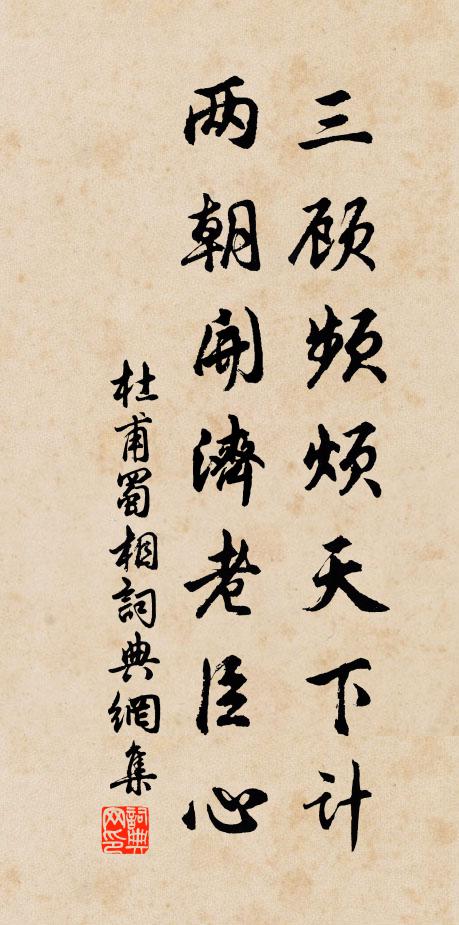 三顾频烦天下计
两朝開濟老臣心
杜甫蜀相詞典網集
詞典网印